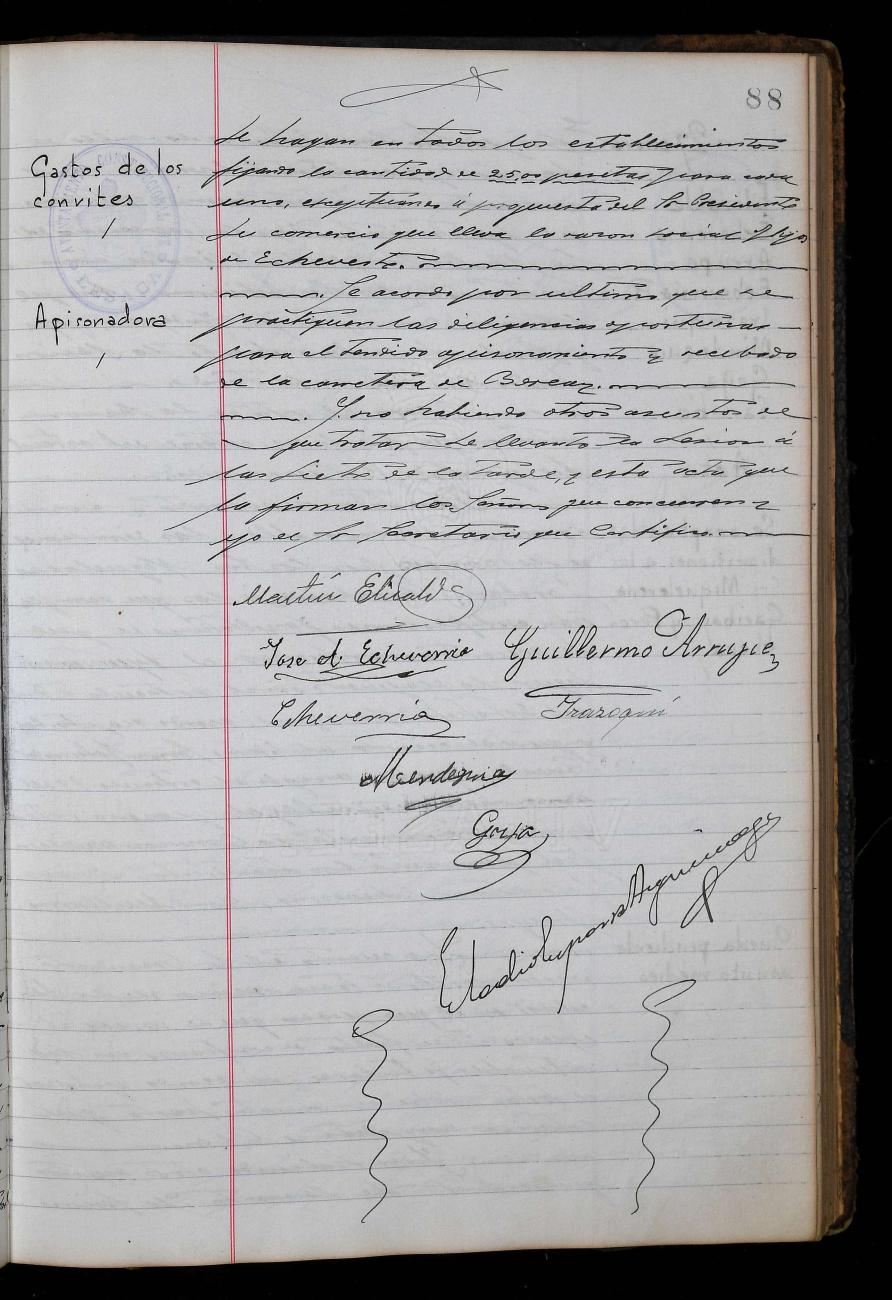 88
Gastos de los
convites
/
Apisonadora
/
se hagan en todos los establecimientos
fijando la cantidad de 25,00 pesetas para cada
uno, exceptuanes á propuesta del Sr Presidente
de comercio que lleva la razon social Hijo
de Echeveste.
Se acordo por ultimo que se
practiquen las diligencias oportunas
para el tendido apisonamiento y recebado
de la carretera de Berean.
Y no habiendo otros asuntos de
que tratar se levanto la Sesion á
las Siete de la tarde, y esta acta que
la firman los Señores que concurren y
yo el Sr Secretario que Certifico.
Martín Elicalde
Jose M. Echeverria Guillermo Arrupe
Echeverria Irazoqui
Mendeguia
Goya
Eladio Esparza Aguinaga